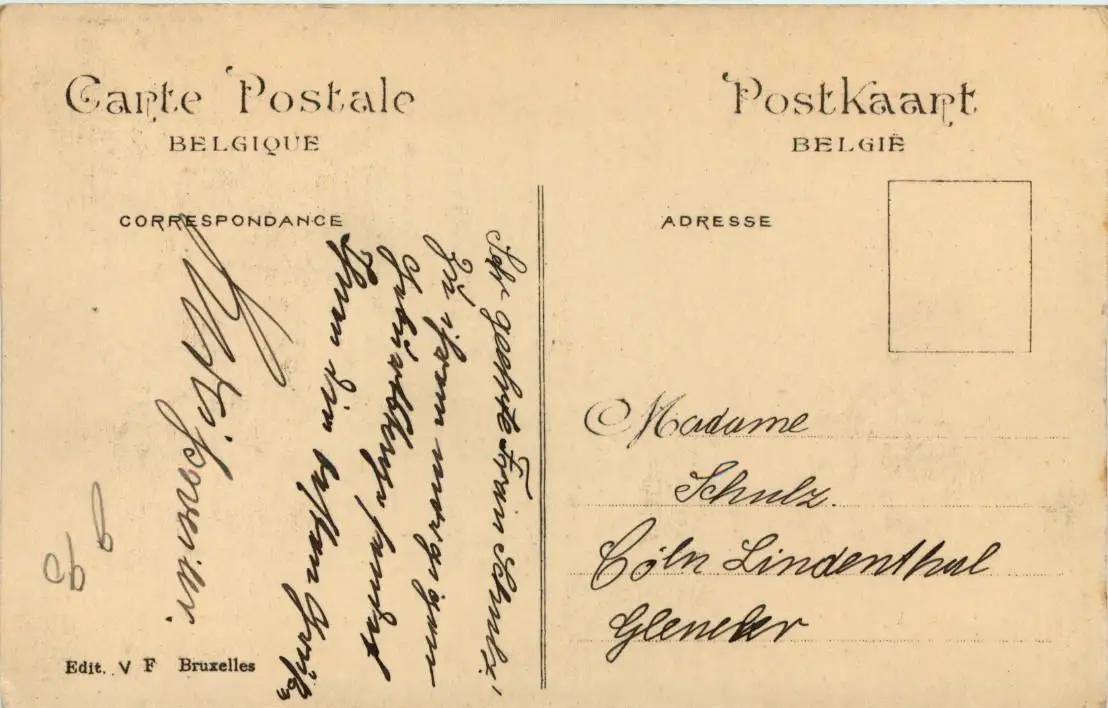 Carte Postale
BELGIQUE
CORRESPONDANCE
Sehr geehrte Frau Schulz!
Zu ihrem morgigen
Geburtstage sendet
Ihnen die besten Grüße
Edit. V F Bruxelles
Postkaart
BELGIË
ADRESSE
Madame
Schulz.
Cöln Lindenthal